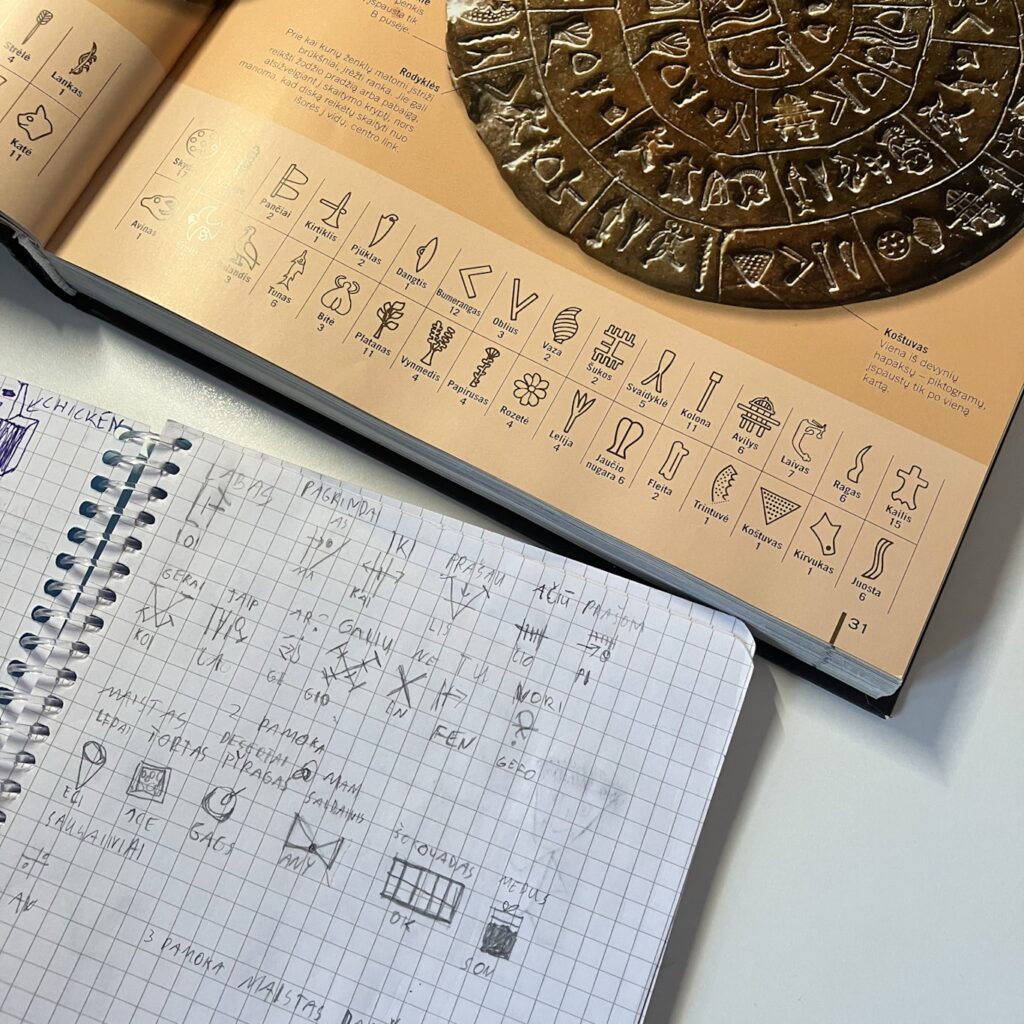 penkis
išspausta tik
B pusėje.
Rodyklės
Prie kai kurių ženklų matomi įstriži
brūkšniai, įrėžti ranka. Jie gali
reikšti žodžio pradžią arba pabaigą,
atsižvelgiant į skaitymo kryptį, nors
manoma, kad diską reikėtų skaityti nuo
išorės į vidų, centro link.
Strėlė
4
Lankas
1
Katė
11
Pančiai
2
Kirtiklis
1
Pjūklas
2
Dangtis
1
Bumerangas
12
Oblius
3
Vaza
2
Šukos
2
Svaidyklė
5
Kolona
11
Avilys
6
Laivas
7
Ragas
6
Kailis
15
Avinas
1
3
Tunas
6
Bitė
3
Platanas
11
Vynmedis
4
Papirusas
4
Rozetė
4
Lelija
4
Jaučio
nugara 6
Fleita
2
Trintuvė
1
Koštuvas
1
Kirvukas
1
Juosta
6
Koštuvas
Viena iš devynių
hapaksų – piktogramų,
įspaustų tik po vieną
kartą.
31
CHICKEN
LABAS PAGRINDAI
AŠ IKI PRAŠAU AČIŪ PRAŠOM
KAI LIS CIO PI
GERAI TAIP AR? GALIU NE TU NORI
KOI GI GIO EN FEN GEFO
2 PAMOKA
MAISTAS DESERTAI MAN
LEDAI TORTAS PYRAGAS SALDAINIS ŠOKOLADAS MEDUS
EČI GAGS ANY OK SOM
AN
3 PAMOKA MAISTAS